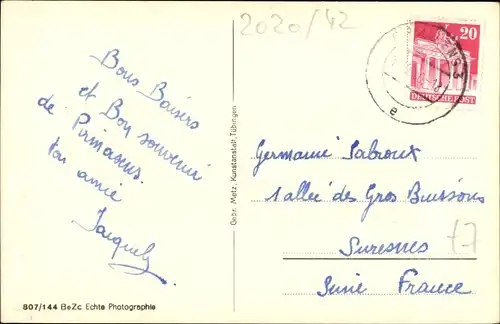 2020/42
Bons Baisers
et Bon souvenir
de Pirmasens.
ton amie
Jacquely
807/144 BeZc Echte Photographie
Gebr. Metz, Kunstanstalt, Tübingen
20
DEUTSCHE POST
e
Germaine Labroux
1 allée des Gros Buissons
Suresnes
Seine France